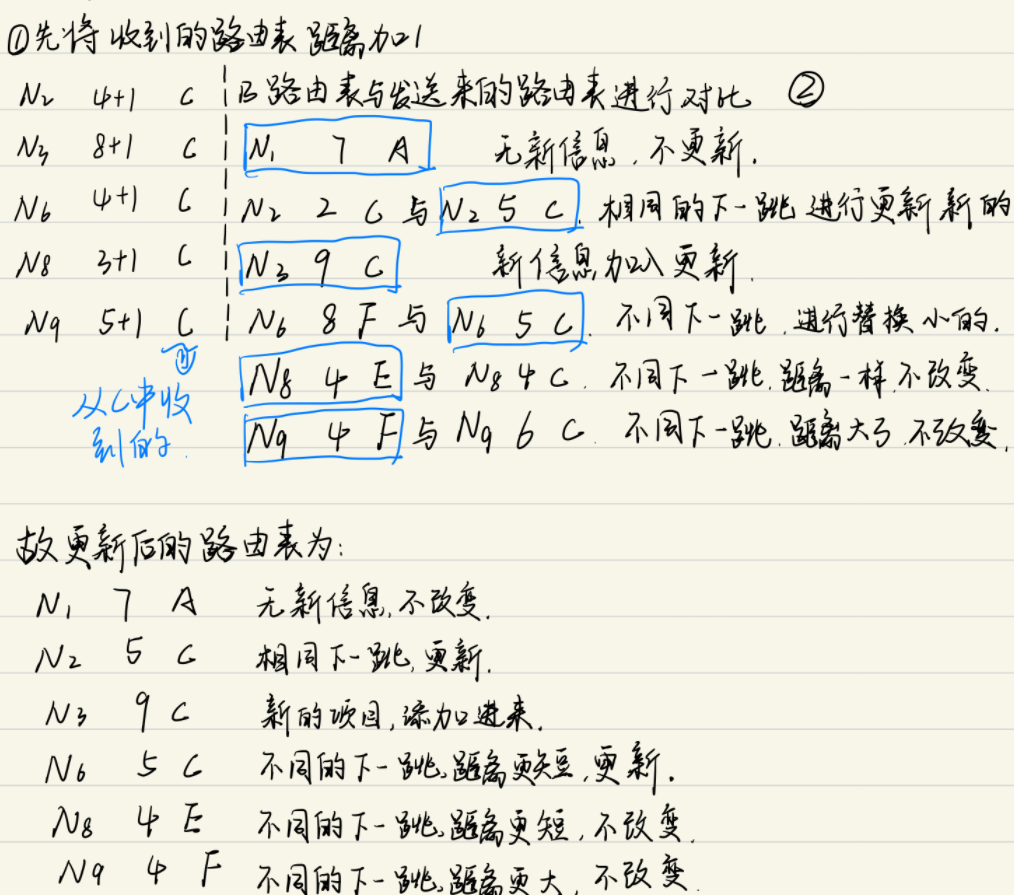 ①先将收到的路由表距离加1
N2 4+1 C B路由表与发送来的路由表进行对比 ②
N3 8+1 C N1 7 A 无新信息,不更新.
N6 4+1 C N2 2 C 与 N2 5 C. 相同的下一跳进行更新新的
N8 3+1 C N3 9 C 新信息加入更新.
N9 5+1 C N6 8 F 与 N6 5 C. 不同下一跳,进行替换小的.
N8 4 E 与 N8 4 C. 不同下一跳,距离一样,不改变.
从C中收
到的.
N9 4 F 与 N9 6 C. 不同下一跳.距离大了.不改变.
故更新后的路由表为:
N1 7 A 无新信息,不改变.
N2 5 C 相同下一跳,更新.
N3 9 C 新的项目,添加进来.
N6 5 C 不同的下一跳,距离更短,更新.
N8 4 E 不同的下一跳,距离更短,不改变.
N9 4 F 不同的下一跳,距离更大,不改变.